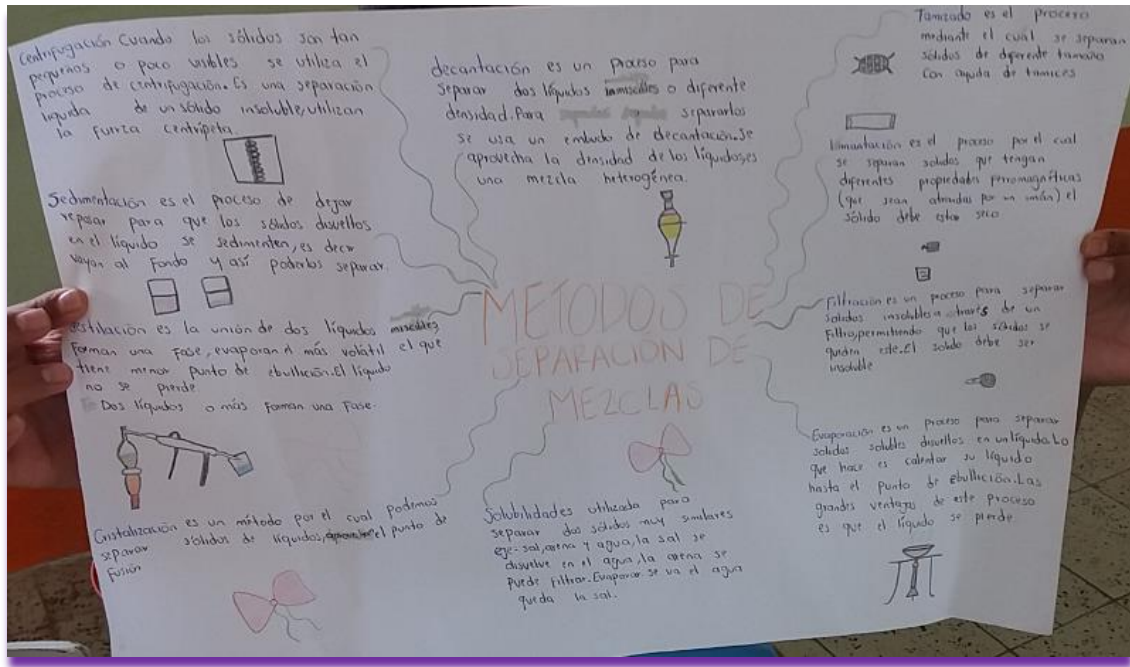 Centrifugación Cuando los sólidos son tan
pequeños o poco visibles se utiliza el
proceso de centrifugación. Es una separación
liquida de un sólido insoluble, utilizan
la fuerza centrípeta.
Sedimentación es el proceso de dejar
reposar para que los sólidos disueltos
en el líquido se sedimenten, es decir
vayan al fondo y así poderlos separar.
Destilación es la unión de dos líquidos miscibles
forman una fase, evaporan el más volátil el que
tiene menor punto de ebullición. El líquido
no se pierde
Dos líquidos o más forman una fase.
Cristalización es un método por el cual podemos
separar sólidos de líquidos, el punto de
fusión
decantación es un proceso para
separar dos líquidos inmiscibles o diferente
densidad. Para separarlos
se usa un embudo de decantación. Se
aprovecha la densidad de los líquidos, es
una mezcla heterogénea.
METODOS DE
SEPARACION DE
MEZCLAS
Solubilidades utilizada para
separar dos sólidos muy similares
eje- sal, arena y agua, la sal se
disuelve en el agua, la arena se
puede filtrar. Evaporar se va el agua
queda la sal.
Tamizado es el proceso
mediante el cual se separan
sólidos de diferente tamaño
con ayuda de tamices
Iimantación es el proceso por el cual
se separan solidos que tengan
diferentes propiedades ferromagnéticas
(que sean atraidas por un imán) el
sólido debe estar seco
Filtración es un proceso para separar
solidos insolubles a través de un
filtro, permitiendo que los sólidos se
queden este. El solido debe ser
insoluble
Evaporación es un proceso para separar
solidos solubles disueltos en un líquido. Lo
que hace es calentar su líquido
hasta el punto de ebullición. Las
grandes ventajas de este proceso
es que el líquido se pierde